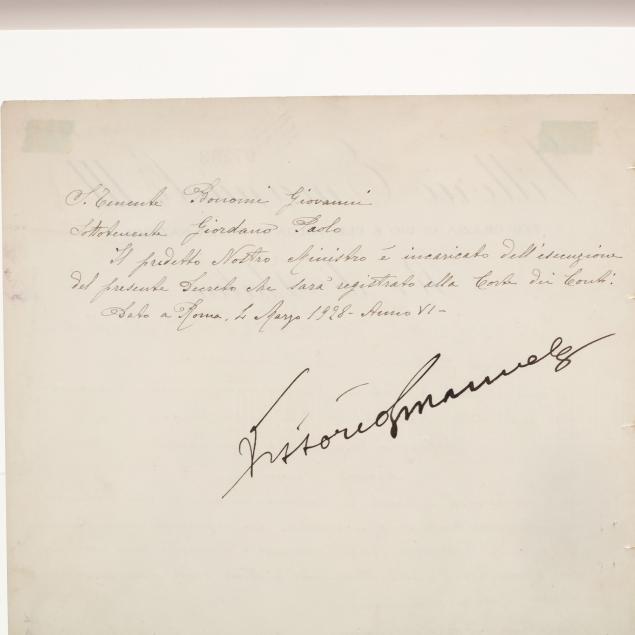 S. Tenente Bonomi Giovanni
Sottotenente Giordano Paolo
Il predetto Nostro Ministro è incaricato dell'esecuzione
del presente Decreto che sarà registrato alla Corte dei Conti.
Dato a Roma, 4 Marzo 1928 - Anno VI -
Vittorio Emanuele